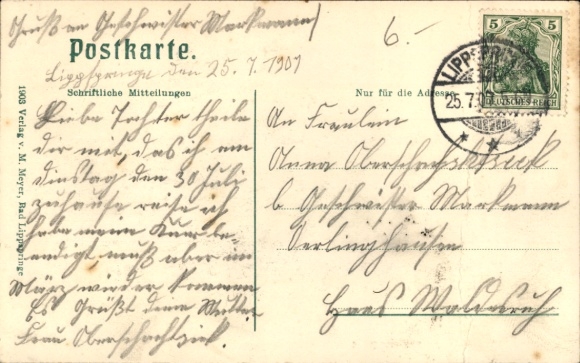 Gruß an Geschwister Markmann
Postkarte.
Lippspringe den 25. 7. 1907
Schriftliche Mitteilungen
Liebe Tochter theile
dir mit, das ich am
dinstag den 30 Juli
zuhause reise ich
habe meine Kuur be-
endigt muß aber im
März wieder kommen
Es Grüßt deine Mutter
Frau
6.
5 5
DEUTSCHES REICH
LIPPSPRINGE
25.7.07
Nur für die Adresse
An Fräulein
Anna
b Geschwister Markmann
Oerlinghausen
Haus Waldesruh
1903 Verlag v. M. Meyer, Bad Lippspringe